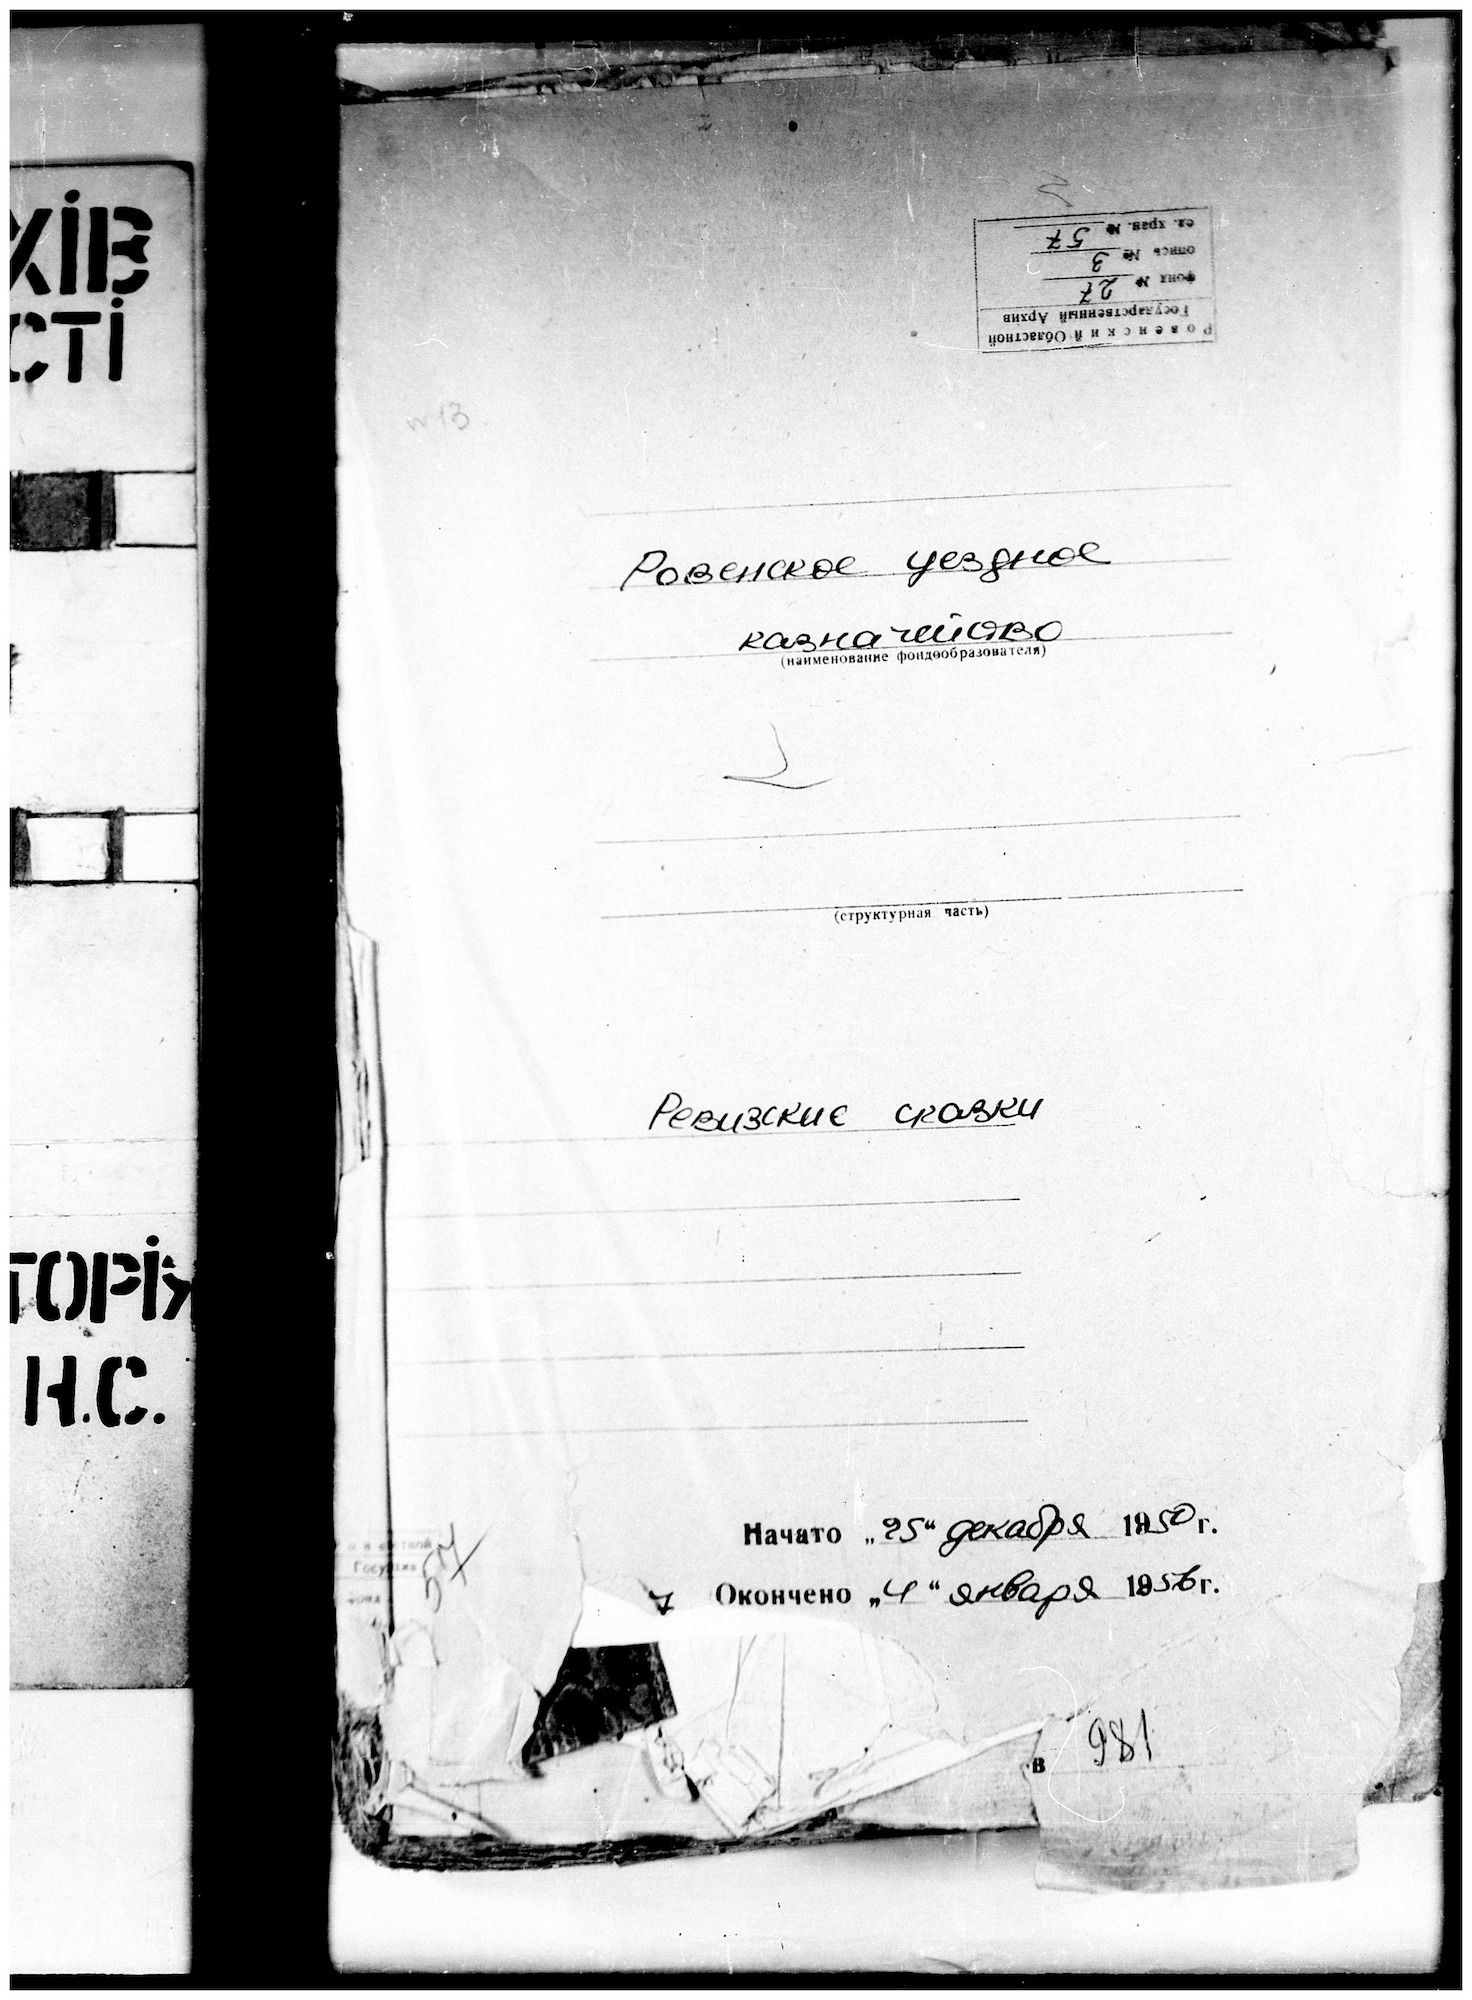 ХІВ
СТІ
ТОРІЯ
Н.С.
Ровенский Областной
Государственный Архив
фонд № 27
опись № 3
ед. хран. № 57
Ровенское уездное
казначейство
(наименование фондообразователя)
(структурная часть)
Ревизские сказки
Начато „25“ декабря 1850 г.
Окончено „4“ января 1856 г.
57
в 981